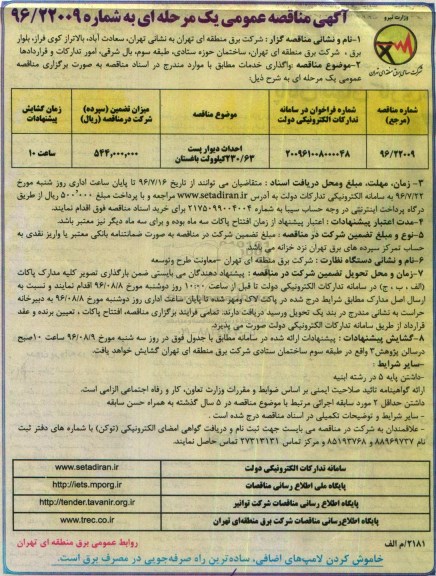 وزارت نیرو
آگهی مناقصه عمومی یک مرحله ای به شماره ۹۶/۲۲۰۰۹
۱-نام و نشانی مناقصه گزار : شرکت برق منطقه ای تهران به نشانی تهران، سعادت آباد، بالاتراز کوی فراز، بلوار
برق ، شرکت برق منطقه ای تهران، ساختمان حوزه ستادی، طبقه سوم، بال شرقی، امور تدارکات و قراردادها
۲-موضوع مناقصه :واگذاری خدمات مطابق با موارد مندرج در اسناد مناقصه به صورت برگزاری مناقصه
عمومی یک مرحله ای به شرح ذیل:
شماره مناقصه (مرجع) شماره فراخوان در سامانه تدارکات الکترونیکی دولت موضوع مناقصه میزان تضمین (سپرده) شرکت درمناقصه (ریال) زمان گشایش پیشنهادات
۹۶/۲۲۰۰۹ ۲۰۰۹۶۱۰۰۸۰۰۰۰۴۸ احداث دیوار پست ۲۳۰/۶۳کیلوولت باغستان ۵۴۴,۰۰۰,۰۰۰ ساعت ۱۰
۳- زمان، مهلت، مبلغ ومحل دریافت اسناد : متقاضیان می توانند از تاریخ ۹۶/۷/۱۶ تا پایان ساعت اداری روز شنبه مورخ
۹۶/۷/۲۲ به سامانه تدارکات الکترونیکی دولت به آدرس www.setadiran.ir مراجعه و با پرداخت مبلغ ۵۰۰،۰۰۰ ریال از طریق
درگاه پرداخت اینترنتی در وجه حساب سیبا به شماره ۲۱۷۵۰۹۹۰۰۴۰۰۴ برای خرید اسناد مناقصه فوق اقدام نمایند.
۴-مدت اعتبار پیشنهادات : اعتبار پیشنهاد از زمان افتتاح پاکات سه ماه بوده و برای سه ماه دیگر نیز معتبر باشد.
۵-نوع و مبلغ تضمین شرکت در مناقصه : مبلغ تضمین شرکت در مناقصه به صورت ضمانتنامه بانکی معتبر یا واریز نقدی به
حساب تمرکز سپرده های برق تهران نزد خزانه می باشد
۶-نام و نشانی دستگاه نظارت : شرکت برق منطقه ای تهران -معاونت طرح و توسعه
۷-زمان و محل تحویل تضمین شرکت در مناقصه : پیشنهاد دهندگان می بایستی ضمن بارگذاری تصویر کلیه مدارک پاکات
(الف ، ب ، ج) در سامانه تدارکات الکترونیکی دولت تا قبل از ساعت ۱۰:۰۰ روز دوشنبه مورخ ۹۶/۰۸/۸ اقدام نمایند و نسبت به
ارسال اصل مدارک مطابق شرایط درج شده در پاکت لاک ومهر شده تا پایان ساعت اداری روز دوشنبه مورخ ۹۶/۰۸/۸ به دبیرخانه
حراست به نشانی مندرج در بند یک تحویل ورسید دریافت دارند. تمامی فرایند برگزاری مناقصه، افتتاح پاکات ، تعیین برنده و عقد
قرارداد از طریق سامانه تدارکات الکترونیکی دولت صورت می پذیرد.
۸-گشایش پیشنهادات : پیشنهادات ارائه شده در سامانه مطابق با جدول فوق در روز سه شنبه مورخ ۹۶/۰۸/۹ ساعت ۱۰صبح
درسالن پژوهش۳ واقع در طبقه سوم ساختمان ستادی شرکت برق منطقه ای تهران گشایش خواهد یافت.
-سایر شرایط :
-داشتن پایه ۵ در رشته ابنیه
-ارائه گواهینامه تائید صلاحیت ایمنی بر اساس ضوابط و مقررات وزارت تعاون، کار و رفاه اجتماعی الزامی است.
داشتن حداقل ۲ مورد سابقه اجرائی مرتبط با موضوع مناقصه در ۵ سال گذشته به همراه حسن سابقه
- سایر شرایط و توضیحات تکمیلی در اسناد مناقصه درج شده است .
- علاقمندان به شرکت در مناقصه می بایست جهت ثبت نام و دریافت گواهی امضای الکترونیکی (توکن) با شماره های دفتر ثبت
نام ۸۸۹۶۹۷۳۷ و ۸۵۱۹۳۷۶۸ و مرکز تماس ۲۷۳۱۳۱۳۱ تماس حاصل نمایند.
سامانه تدارکات الکترونیکی دولت www.setadiran.ir
پایگاه ملی اطلاع رسانی مناقصات http://iets.mporg.ir
پایگاه اطلاع رسانی مناقصات شرکت توانیر http://tender.tavanir.org.ir
پایگاه اطلاع‌رسانی مناقصات شرکت برق منطقه‌ای تهران www.trec.co.ir
۲۱۸۱/م الف
روابط عمومی برق منطقه ای تهران
خاموش کردن لامپ‌های اضافی، ساده‌ترین راه صرفه‌جویی در مصرف برق است.